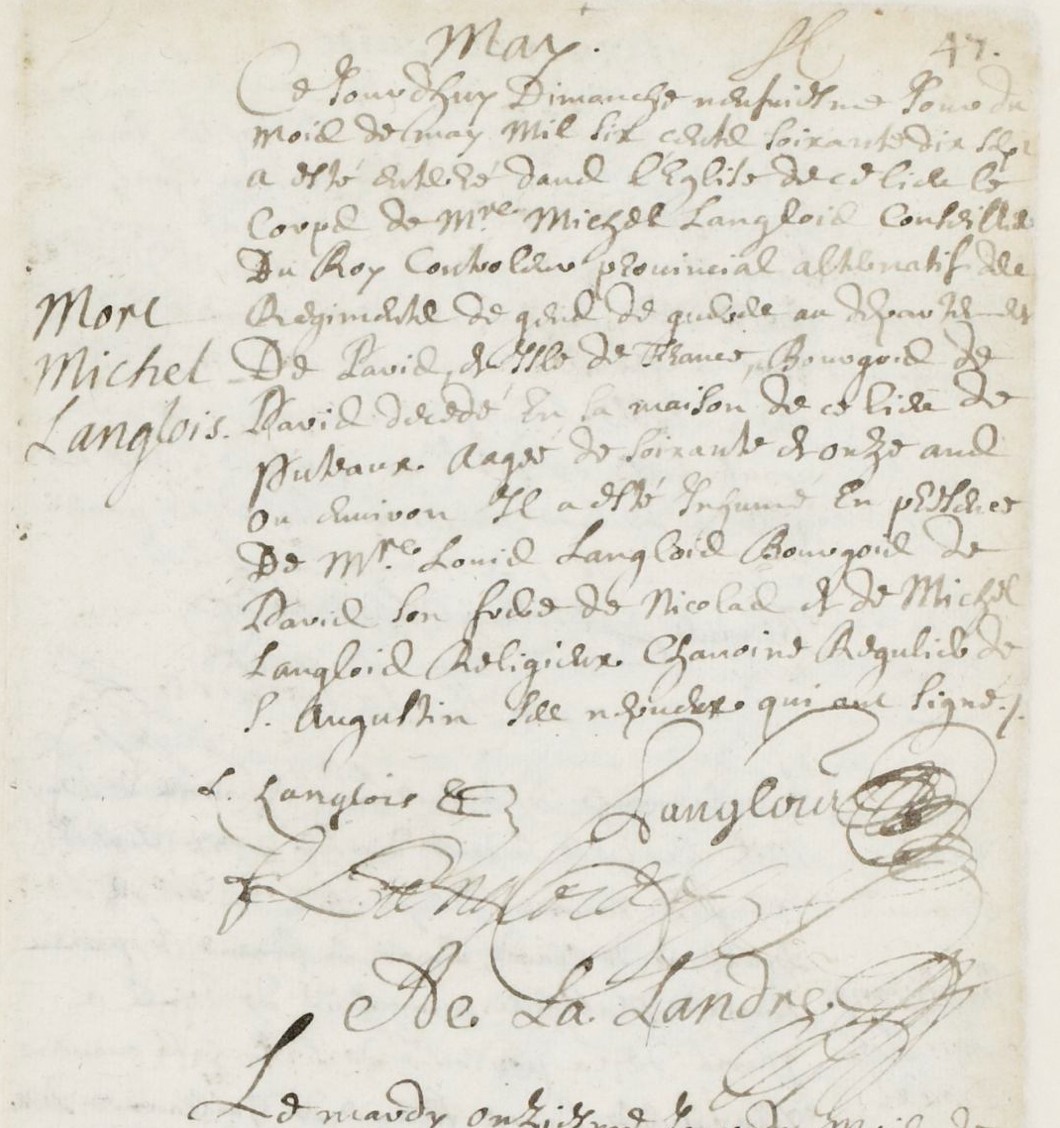 May.
47.
Ce Jourdhuy Dimanche neufuiesme Jour du
mois de may mil six cents soixante dix sept
a esté enterré dans l'Eglise de ce lieu le
Corps de Mre Michel Langlois Conseiller
Du Roy Controleur prouincial alternatif des
Regiments de gens de guerre au departement
De Paris, et Isle de France, Bourgois de
Paris decedé En sa maison de ce lieu de
Puteaux. Aagée de soixante et onze ans
ou enuiron Il a esté Inhumé En presence
De Mre Louis Langlois Bourgois de
Paris son frere de Nicolas et de Michel
Langlois Religieux Chanoine Regulier de
S. Augustin Ses nepueux qui ont signé./.
Mort
Michel
Langlois.
L. Langlois
Langlois
f Langlois
De. La. Lande.
Le mardy onziesme Jour du Mois de